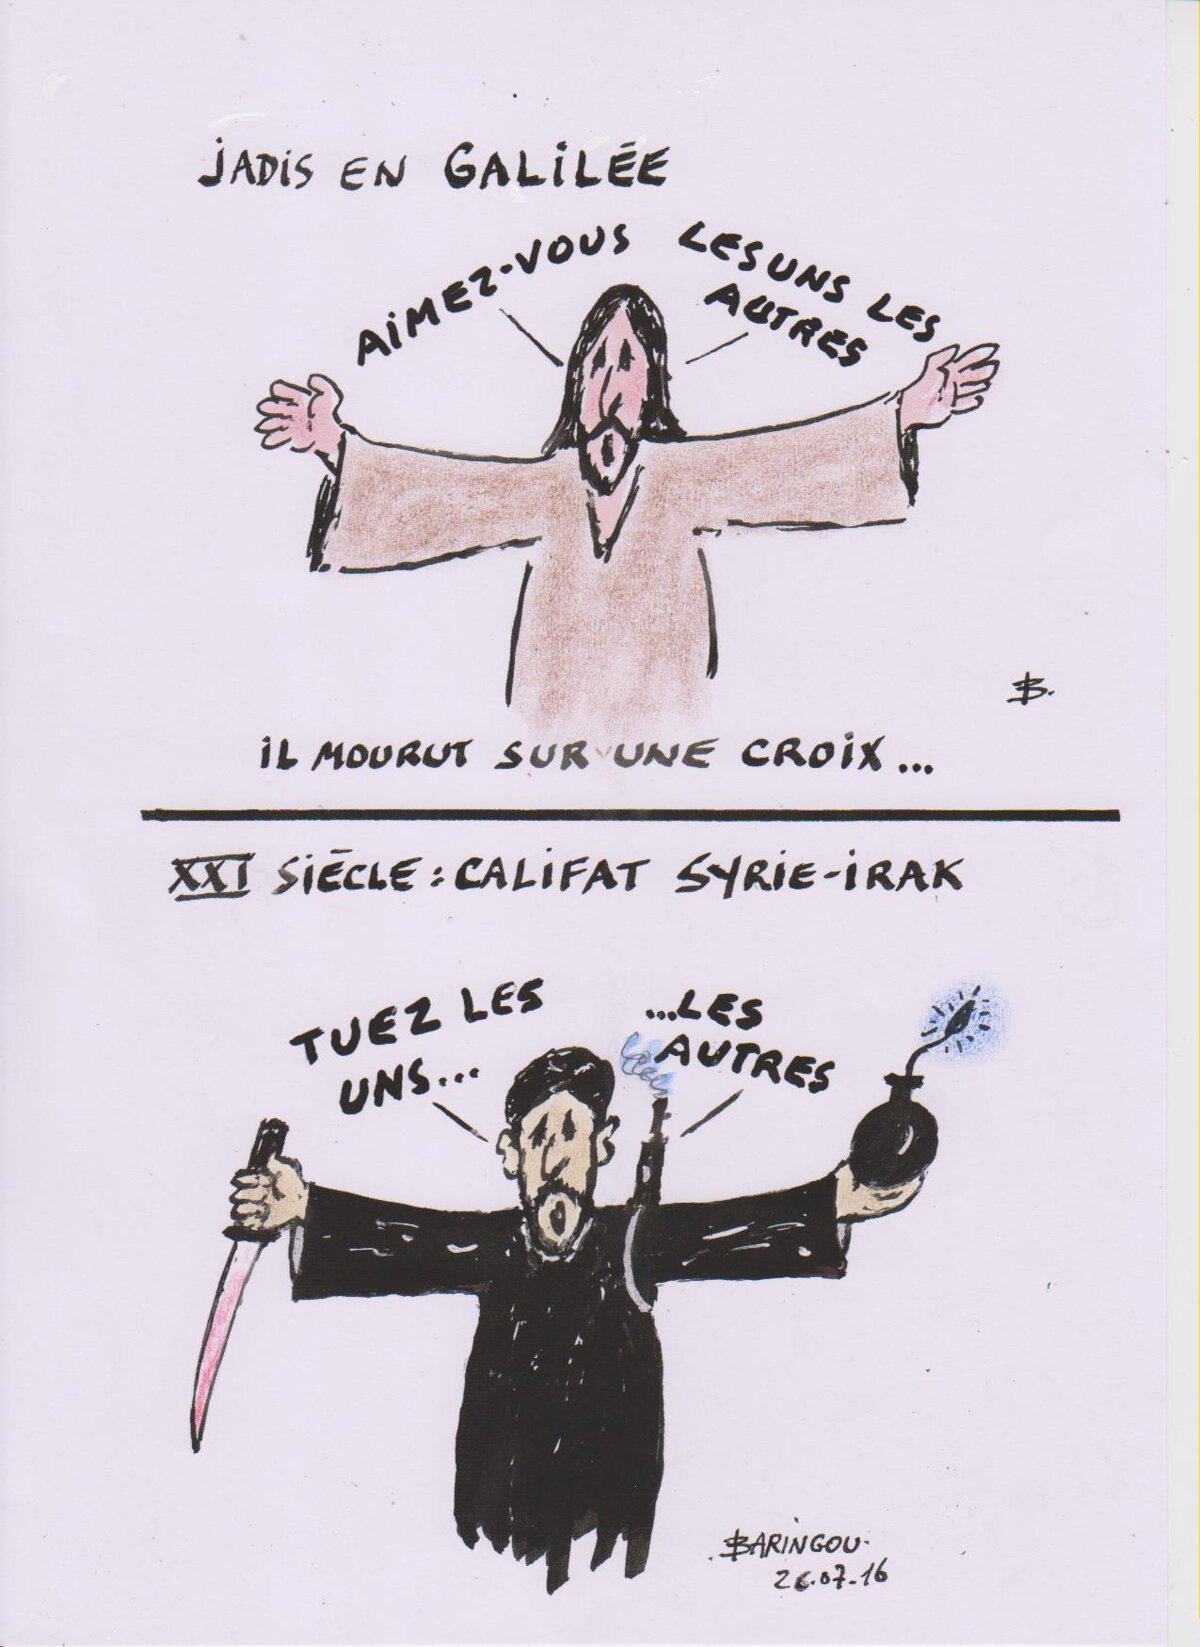 JADIS EN GALILÉE
AIMEZ-VOUS LES UNS LES
AUTRES
B.
IL MOURUT SUR UNE CROIX...
XXI SIÈCLE : CALIFAT SYRIE-IRAK
TUEZ LES
UNS...
...LES
AUTRES
BARINGOU.
26.07.16